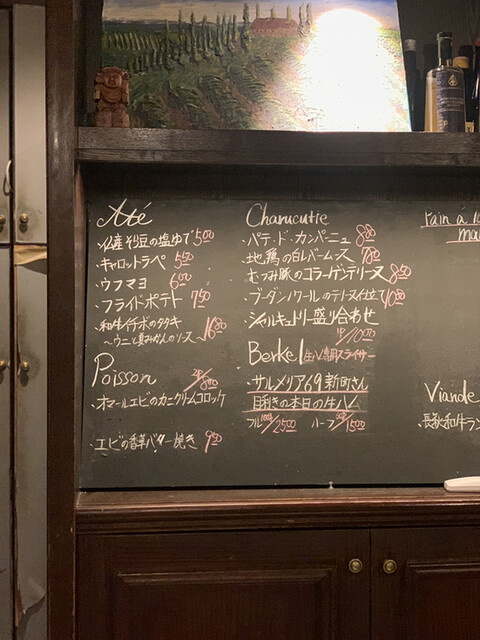 Été
・仏産そら豆の塩ゆで 500
・キャロットラペ 550
・ウフマヨ 600
・フライドポテト 750
・和牛イチボのタタキ
〜ウニと夏みかんのソース〜 1680
Poisson
・オマールエビのカニクリームコロッケ
・エビの香草バター焼き 950
Charcutie
・パテ・ド・カンパーニュ 880
・地鶏の白レバームース 780
・むつみ豚のコラーゲンテリーヌ 850
・ブーダンノワールのテリーヌ仕立て
・シャルキュトリー盛り合わせ
Berkel 生ハム専用スライサー
・サルメリア69新町さん
目利きの本日の生ハム
フル 100g/2500 ハーフ 50g/1500
Pain à la
Viande
・長萩和牛ラン